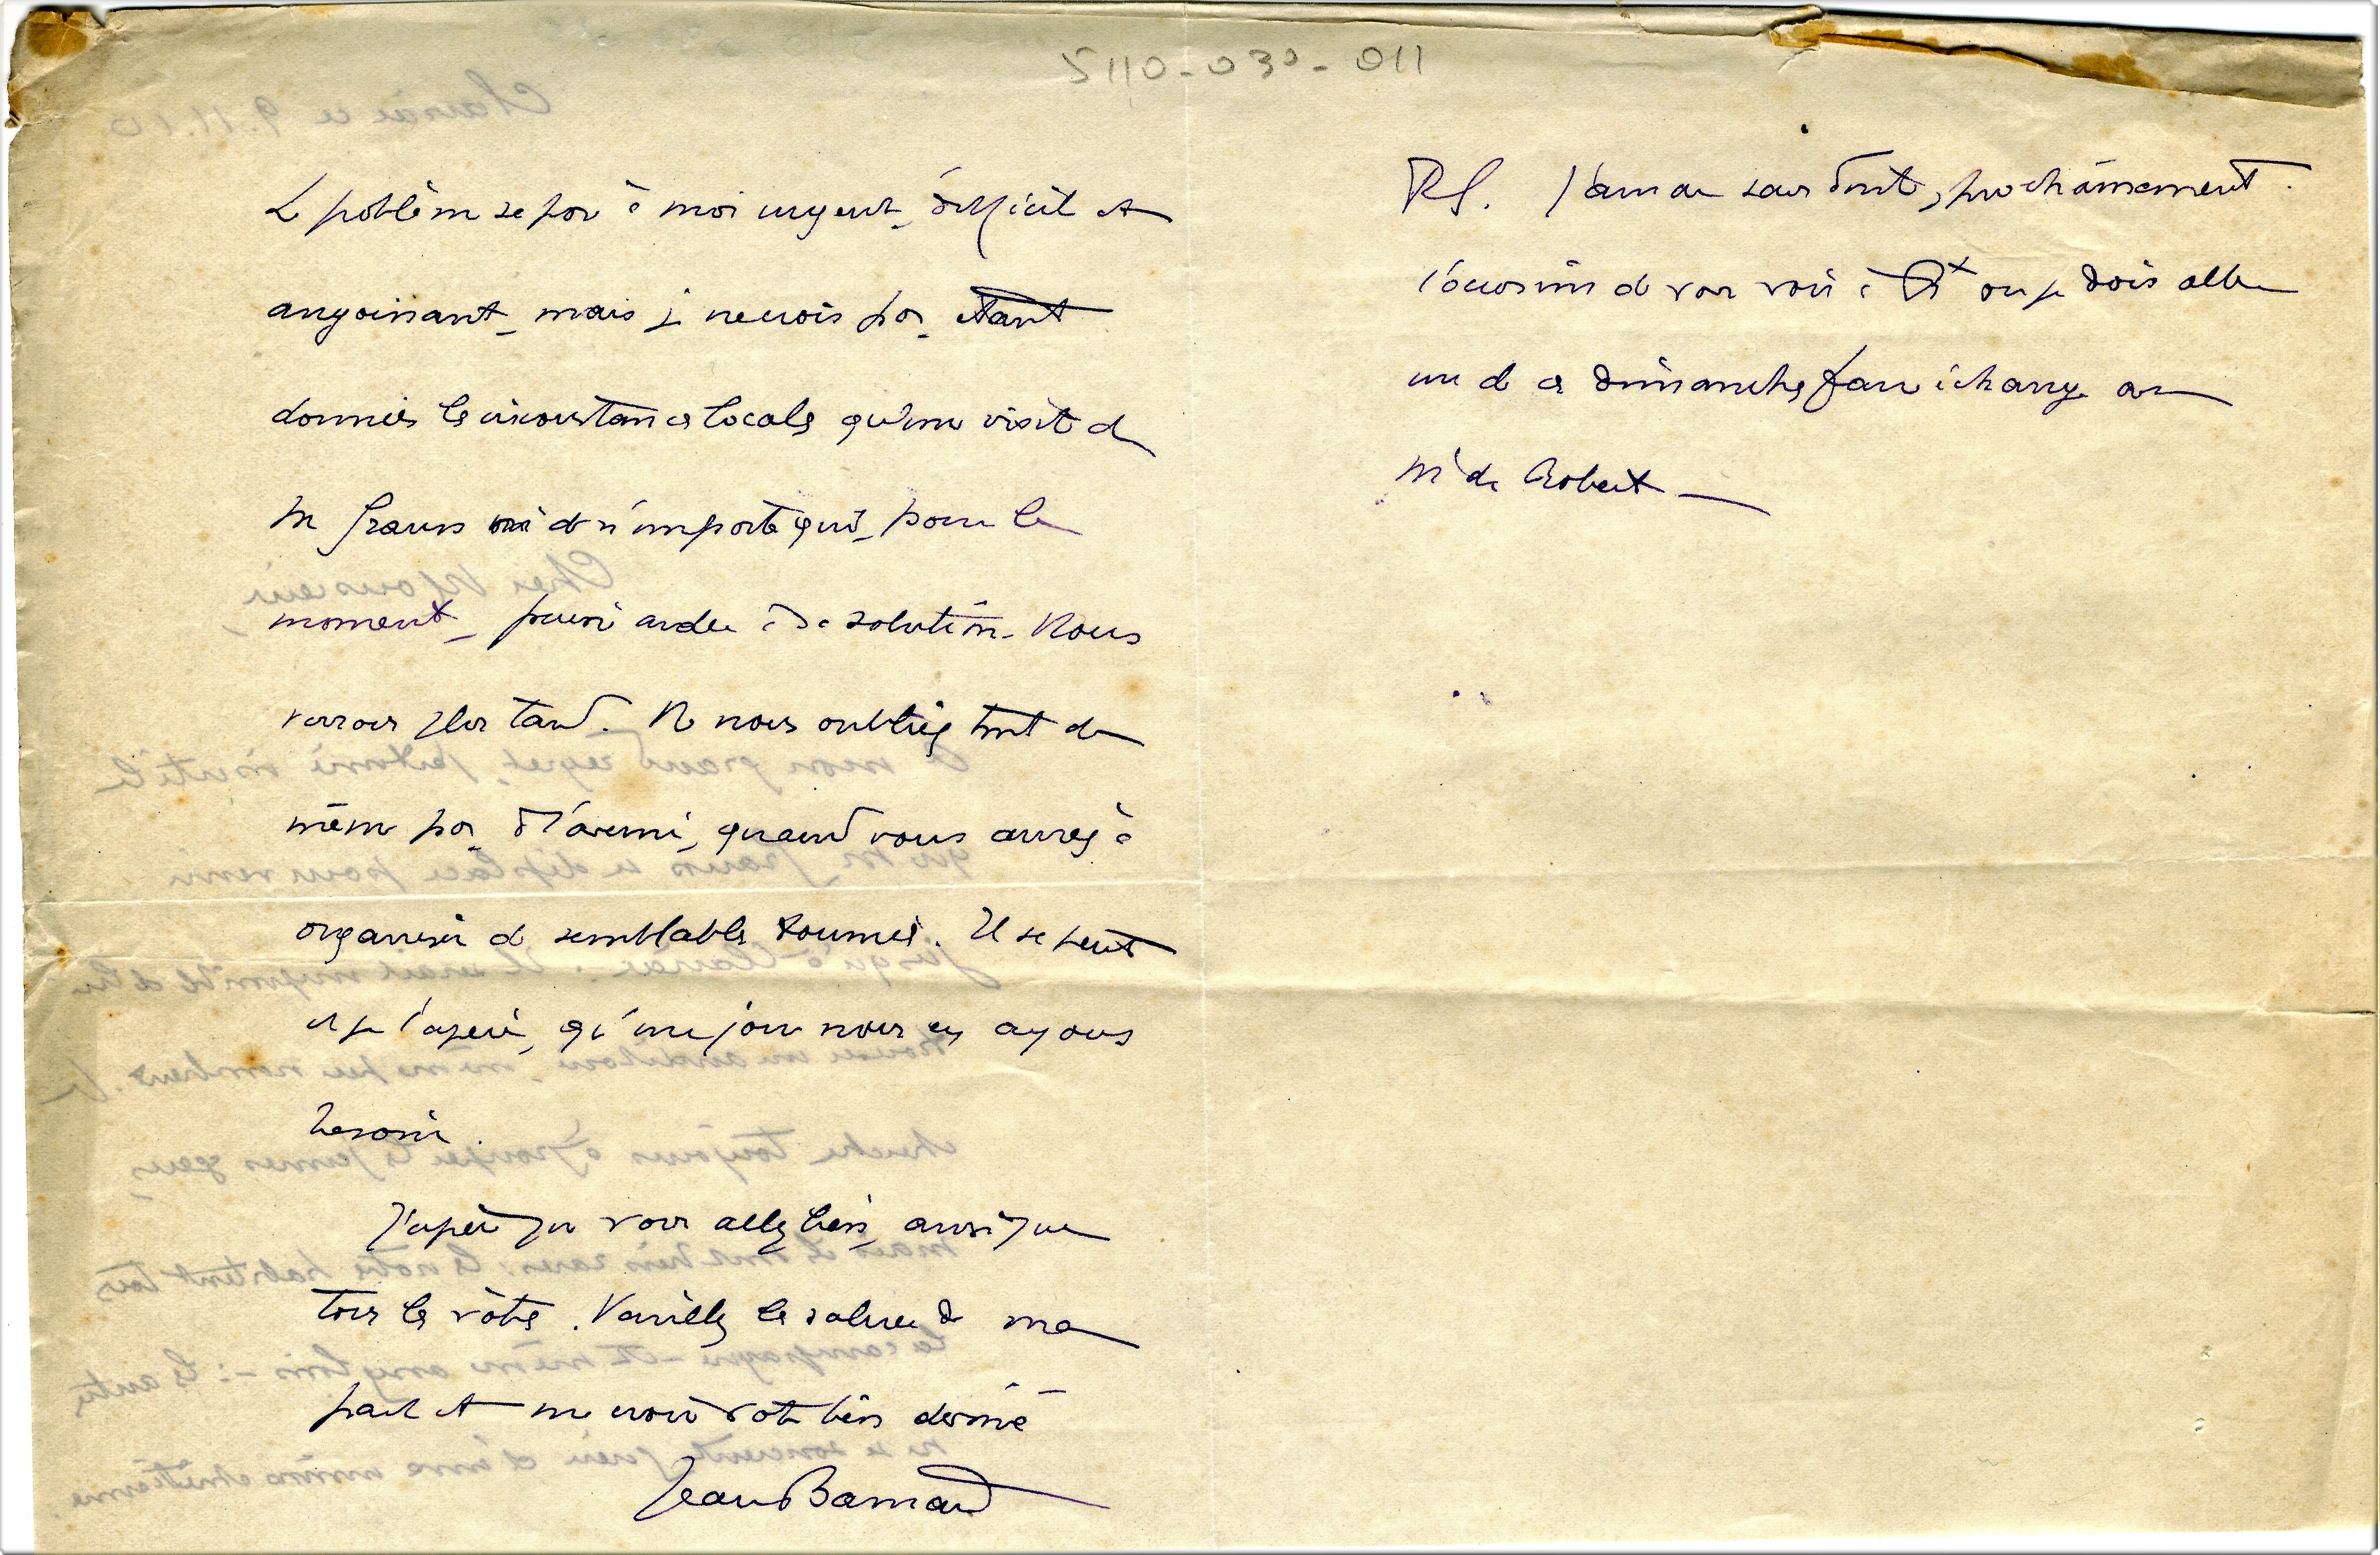 5110-030-011
Le problème se pose à moi urgent, difficile et
angoissant, mais je ne crois pas, étant
données les circonstances locales qu'une visite de
Mr Grauss ni de n'importe qui, pour le
moment, puisse aider à sa solution. Nous
verrons plus tard. Ne nous oubliez tout de
même pas, à l'avenir, quand vous aurez à
organiser de semblables tournées. Il se peut
et je l'espère, qu'un jour nous en ayons
besoin.
J'espère que vous allez bien, ainsi que
tous les vôtres. Veuillez les saluer de ma
part et me croire votre bien dévoué
Jean Barnaud
P.S. J'aurai sans doute, prochainement
l'occasion de vous voir à où je dois aller
un de ces dimanches faire échange avec
Mr de Robert